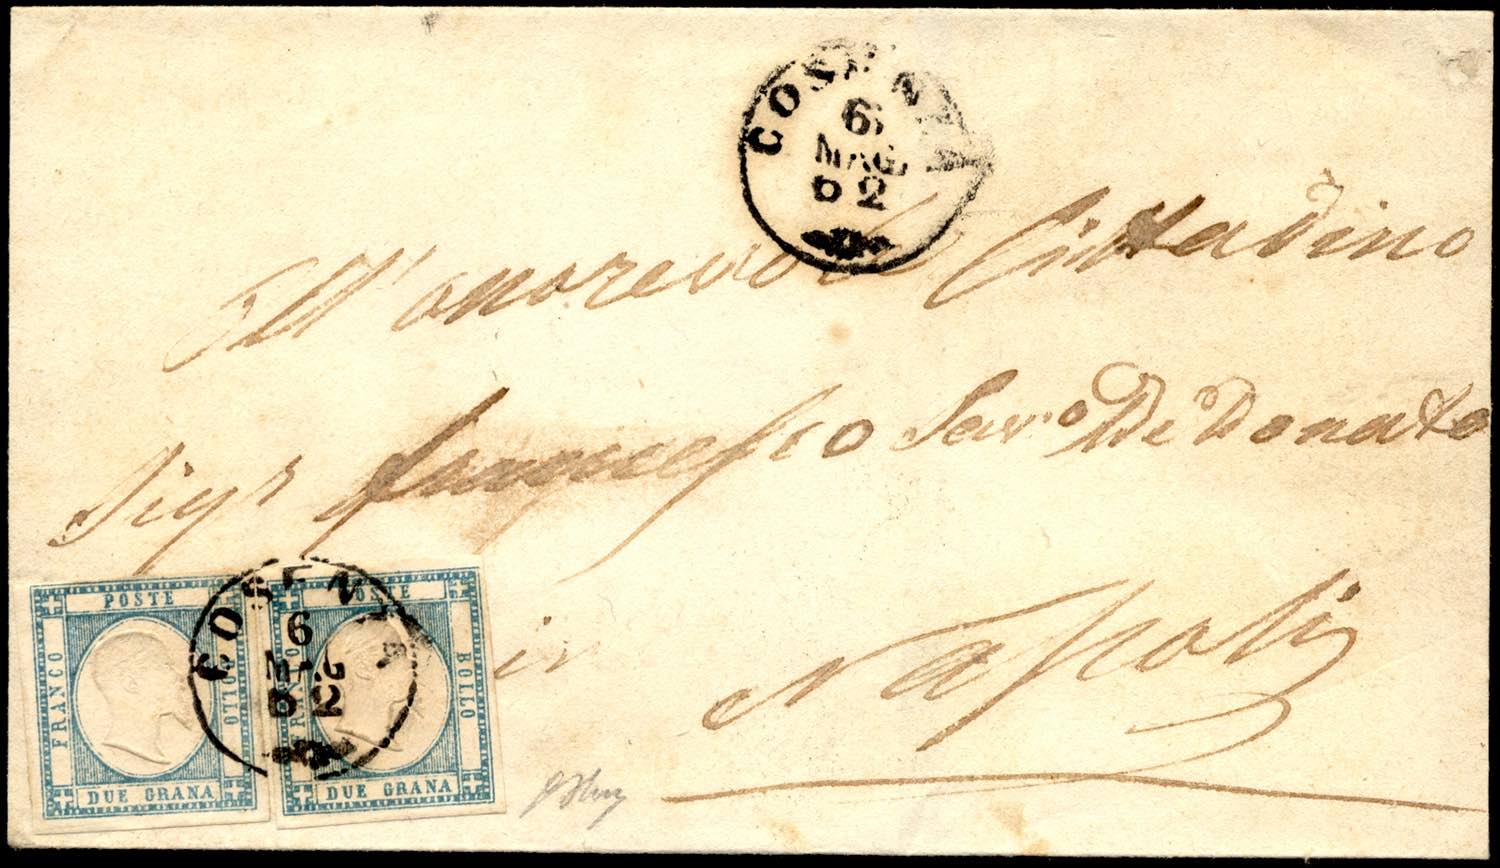 COSENZA
6
MAG
62
All'onorevole Cittadino
Sigr Francesco Sav.o De Donato
in Napoli
POSTE
FRANCO
BOLLO
DUE GRANA
POSTE
FRANCO
BOLLO
DUE GRANA
COSENZA
6
MAG
62